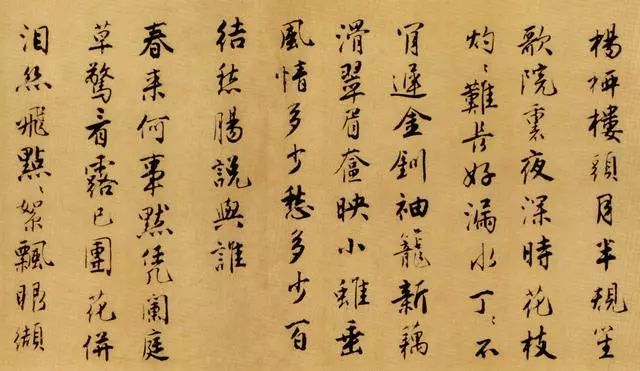 楊桺樓頭月半規笙
歌院裏夜深時花枝
灼〻難長好漏水丁〻不
肎遲金釧袖籠新藕
滑翠眉奩映小垂
風情多少愁多少百
結愁腸說與誰
春来何事默凭闌庭
草驚看露已團花併
淚絲飛點〻絮飄眼纈